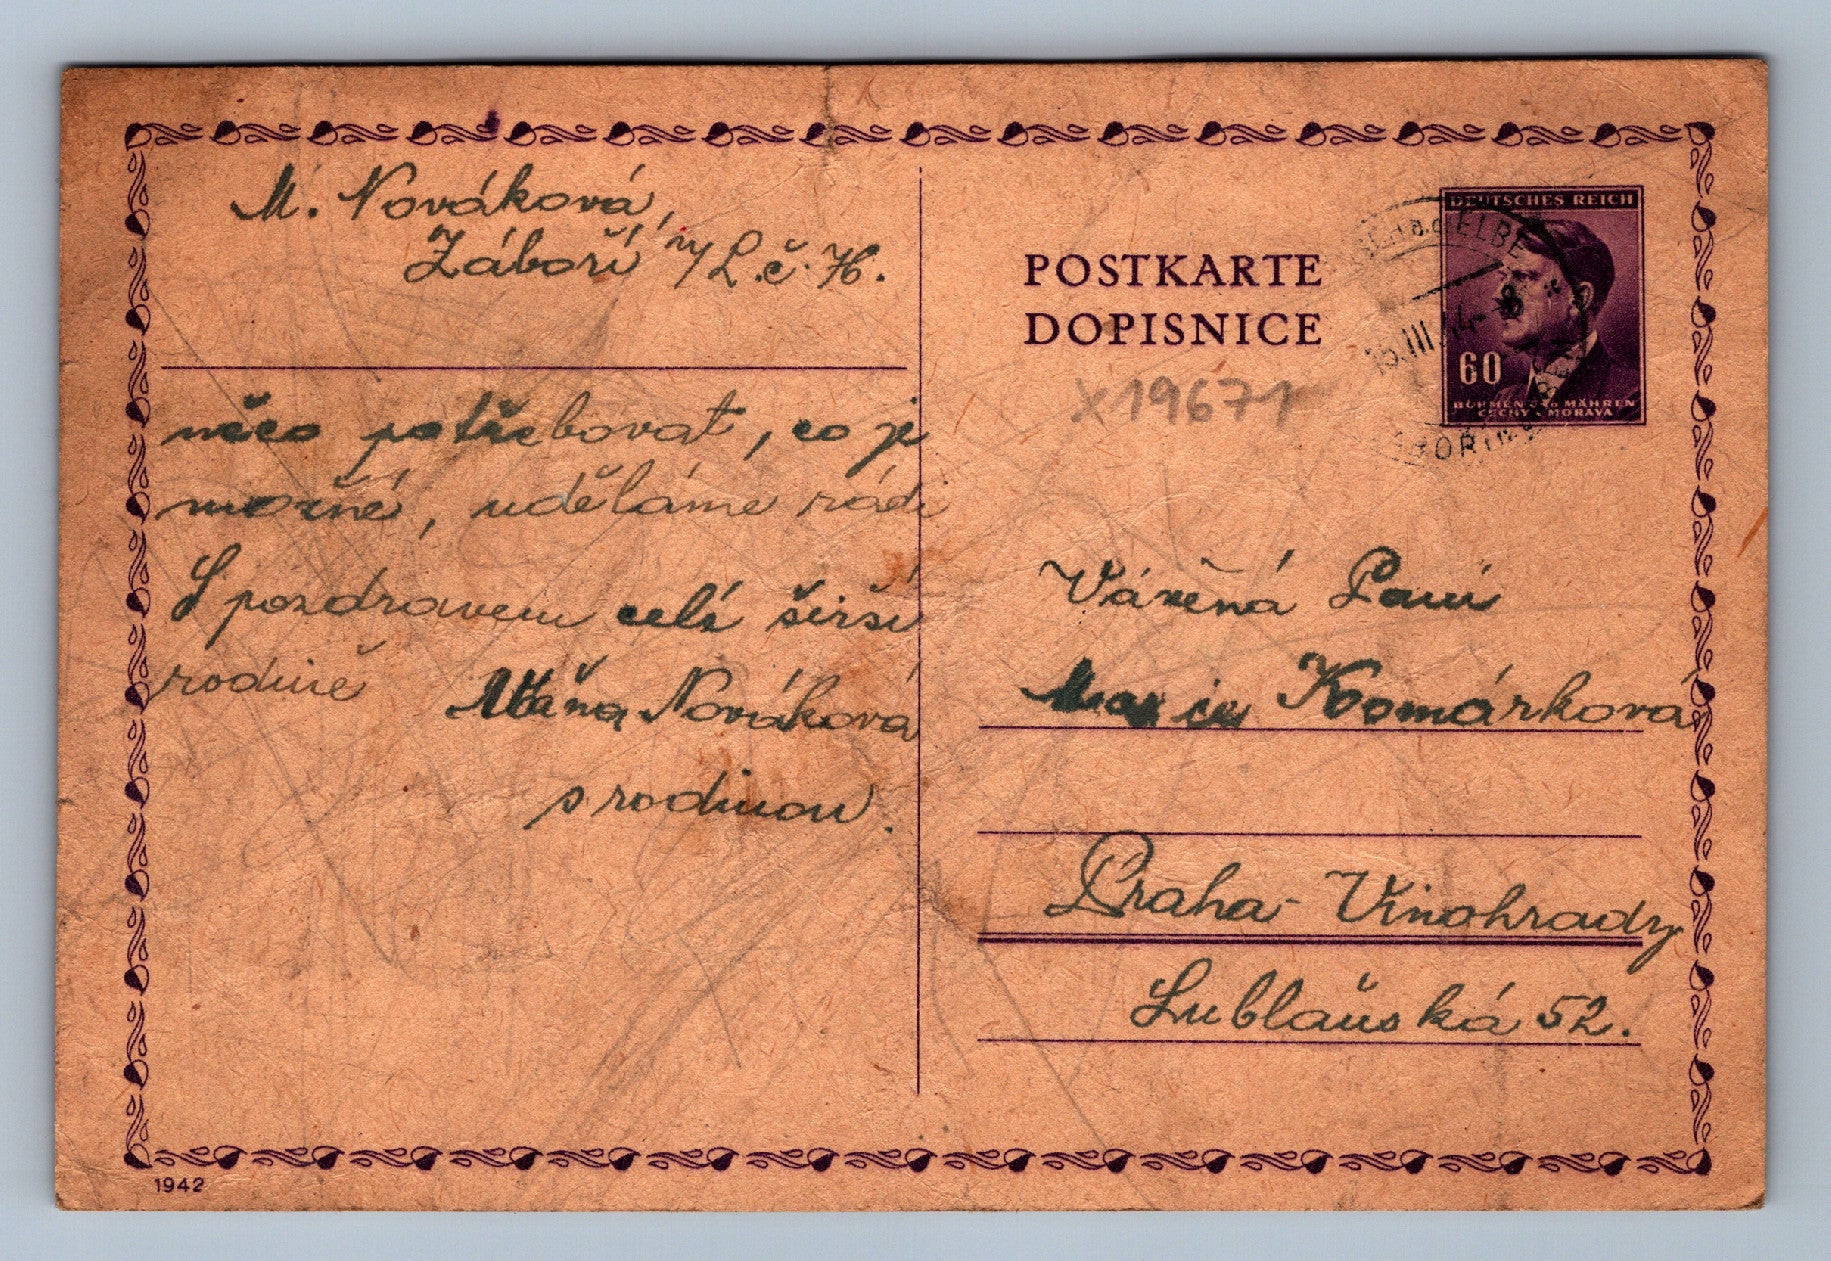 M. Nováková,
Záboří n/L. č. 76.
něco potřebovat, co je
možné, uděláme rádi
S pozdravem celé širší
rodině Máňa Nováková
s rodinou.
POSTKARTE
DOPISNICE
X19671
DEUTSCHES REICH
60
BÖHMEN UND MÄHREN
ČECHY A MORAVA
a.d. ELBE
15.III.44-8
Vážená Paní
Marie Komárková
Praha-Vinohrady
Lublaňská 52.
1942